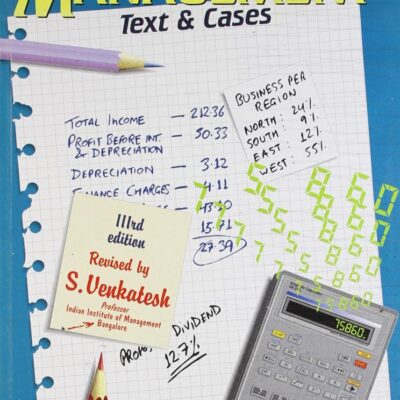 MANAGEMENT
Text & Cases
BUSINESS PER
REGION
NORTH: 24%
SOUTH: 9%
EAST: 12%
WEST: 55%
TOTAL INCOME — 212.36
PROFIT BEFORE INT. — 50.33
& DEPRECIATION
DEPRECIATION — 3.12
FINANCE CHARGES — 4.11
15.71
27.39
IIIrd
edition
Revised by
S.Venkatesh
Professor
Indian Institute of Management
Bangalore
DIVIDEND
12.7%
75860.